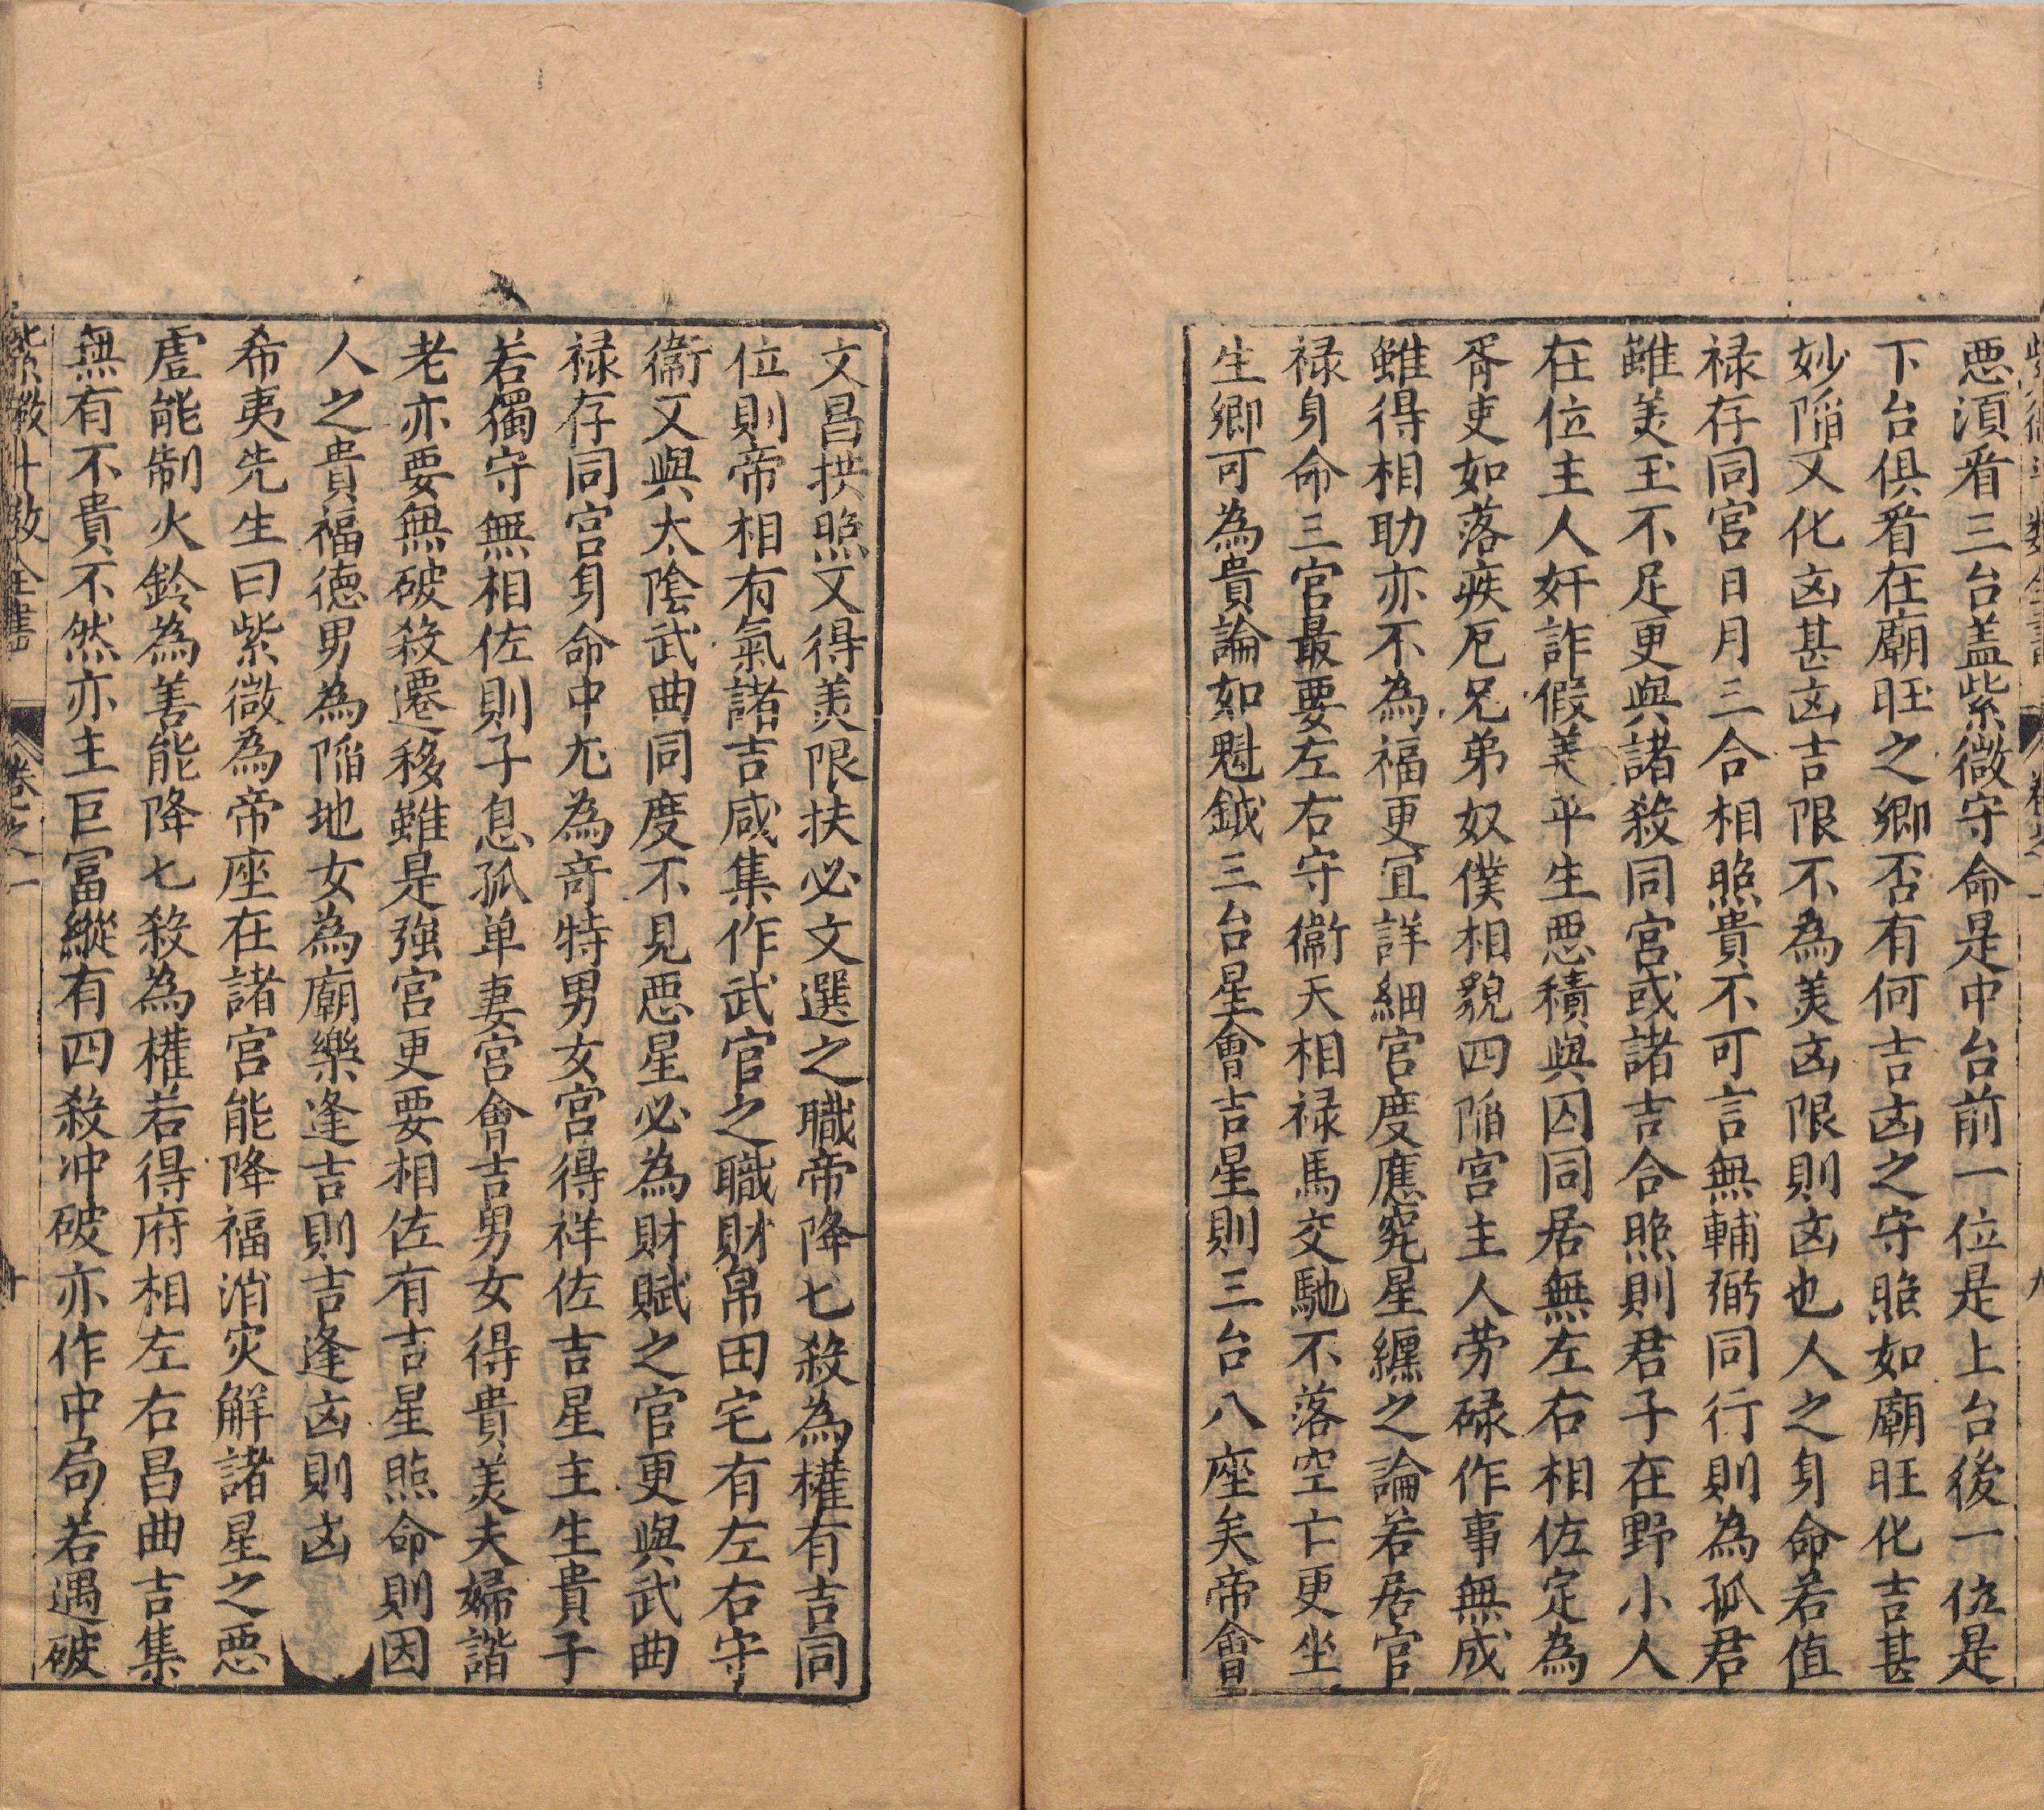 惡須看三台盖紫微守命是中台前一位是上台後一位是
下台俱看在廟旺之鄉否有何吉凶之守照如廟旺化吉甚
妙陷又化凶甚凶吉限不為美凶限則凶也人之身命若值
禄存同宮日月三合相照貴不可言無輔弼同行則為孤君
雖美玉不足更與諸殺同宮或諸吉合照則君子在野小人
在位主人奸詐假善平生惡積與囚同居無左右相佐定為
胥吏如落疾厄兄弟奴僕相貌四陷宮主人劳碌作事無成
雖得相助亦不為福更宜詳細宮度應究星纏之論若居官
禄身命三宮最要左右守衞天相禄馬交馳不落空亡更坐
生鄉可為貴論如魁鉞三台星會吉星則三台八座矣帝會
文昌拱照又得美限扶必文選之職帝降七殺為權有吉同
位則帝相有氣諸吉咸集作武官之職財帛田宅有左右守
衞又與太陰武曲同度不見惡星必為財賦之官更與武曲
禄存同宮身命中尤為奇特男女宮得祥佐吉星主生貴子
若獨守無相佐則子息孤单妻宮會吉男女得貴美夫婦諧
老亦要無破殺遷移雖是強宮更要相佐有吉星照命則因
人之貴福德男為陷地女為廟樂逢吉則吉逢凶則凶
希夷先生曰紫微為帝座在諸宮能降福消灾解諸星之惡
虛能制火鈴為善能降七殺為權若得府相左右昌曲吉集
無有不貴不然亦主巨冨縱有四殺冲破亦作中局若遇破
紫微斗數全書 卷之一 十